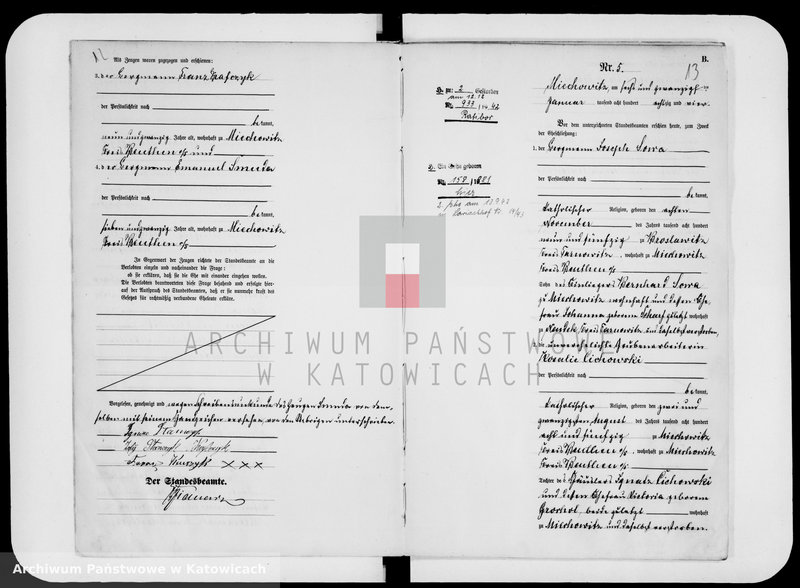 Als Zeugen waren zugezogen und erschienen:
3. der Bergmann Franz
der Persönlichkeit nach
bekannt,
neun und zwanzig Jahre alt, wohnhaft zu Miechowitz
Kreis Beuthen o/s und
4. der Bergmann Emanuel Smuda
der Persönlichkeit nach
bekannt,
sieben und zwanzig Jahre alt, wohnhaft zu Miechowitz
Kreis Beuthen o/s
In Gegenwart der Zeugen richtete der Standesbeamte an die
Verlobten einzeln und nacheinander die Frage:
ob sie erklären, daß sie die Ehe mit einander eingehen wollen.
Die Verlobten beantworteten diese Frage bejahend und erfolgte hier-
auf der Ausspruch des Standesbeamten, daß er sie nunmehr kraft des
Gesetzes für rechtmäßig verbundene Eheleute erkläre.
Vorgelesen, genehmigt und wegen Schreibensunkunde des Zeugen Smuda von dem-
selben mit seinem Handzeichen versehen, von den Uebrigen unterschrieben.
Franz
XXX
Der Standesbeamte.
H. zu: 2 Geschieder
am 12.12
No 933 19 42
Ratibor
No 158 1881
hier
B.
Nr. 5.
13
Miechowitz, am sechs und zwanzigsten
Januar tausend acht hundert achtzig und vier
Vor dem unterzeichneten Standesbeamten erschien heute, zum Zweck
der Eheschließung:
1. der Bergmann Joseph Sowa
der Persönlichkeit nach
bekannt,
katholischer Religion, geboren den achten
November des Jahres tausend acht hundert
neun und fünfzig zu Broslawitz
Kreis Tarnowitz, wohnhaft zu Miechowitz
Kreis Beuthen o/s
Sohn des Einliegers Bernhard Sowa
zu Miechowitz wohnhaft und dessen Ehe-
frau Johanna geborenen Scharf zuletzt wohnhaft
zu Kreis Tarnowitz und daselbst verstorben,
2. die unverehelichte Grubenarbeiterin
Rosalie Cichowski
der Persönlichkeit nach
bekannt,
katholischer Religion, geboren den zwei und
zwanzigsten August des Jahres tausend acht hundert
acht und fünfzig zu Miechowitz
Kreis Beuthen o/s, wohnhaft zu Miechowitz
Kreis Beuthen o/s
Tochter des Häuslers Ignatz Cichowski
und dessen Ehefrau Victoria geborenen
beide zuletzt wohnhaft
zu Miechowitz und daselbst verstorben.
ARCHIWUM PAŃSTWOWE
W KATOWICACH
Archiwum Państwowe w Katowicach